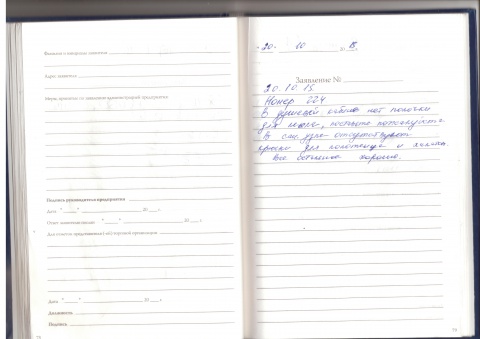 Фамилия и инициалы заявителя
Адрес заявителя
Меры, принятые по заявлению администрацией предприятия:
Подпись руководителя предприятия
Дата "___" ________ 20__ г.
Ответ заявителю послан "___" ________ 20__ г.
Для отметок представителей торговой организации
Дата "___" ________ 20__ г.
Должность
Подпись
78
"20" 10 15
Заявление №
20.10.15
Номер 224
В душевой кабине нет полочки
для мыла, повесьте пожалуйста
В сан. узле отсутствуют
крючки для полотенца и халата.
Все остальное хорошо.
79